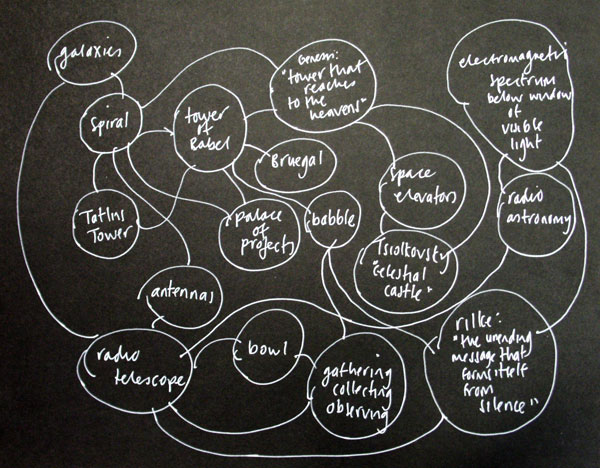 galaxies
Genesis:
"tower that
reaches
to the
heavens"
electromagnetic
spectrum
below window
of
visible
light
spiral
tower
of
Babel
Bruegal
space
elevators
radio
astronomy
Tatlins
Tower
palace
of
projects
babble
Tsiolkovsky
"celestial
castle"
antennas
radio
telescope
bowl
gathering
collecting
observing
rilke:
"the unending
message that
forms itself
from
silence"